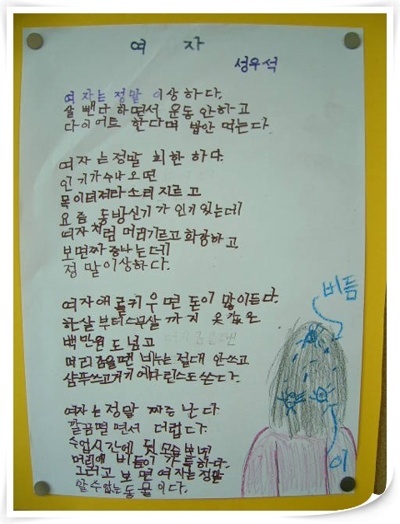 여 자
성우석
여자는 정말 이상하다.
살 뺀다 하면서 운동 안하고
다이어트 한다며 밥만 먹는다.
여자는 정말 희한 하다.
인기가수나오면
목이터져라소리 지르고
요즘 동방신기가 인기있는데
여자처럼 머리기르고 화장하고
보면짜증나는데
정말이상하다.
여자애를키우면 돈이 많이든다.
한살부터스무살 까지 옷값은
백만원도넘고
머리감을땐 비누는 절대 안쓰고
샴푸쓰고거기에다린스도쓴다.
여자는정말 짜증난다
깔끔떨면서 더럽다.
수업시간에 뒷모습보면
머리에 비듬이 가득하다.
그러고 보면 여자는정말
알수없는동물이다.
비듬
이